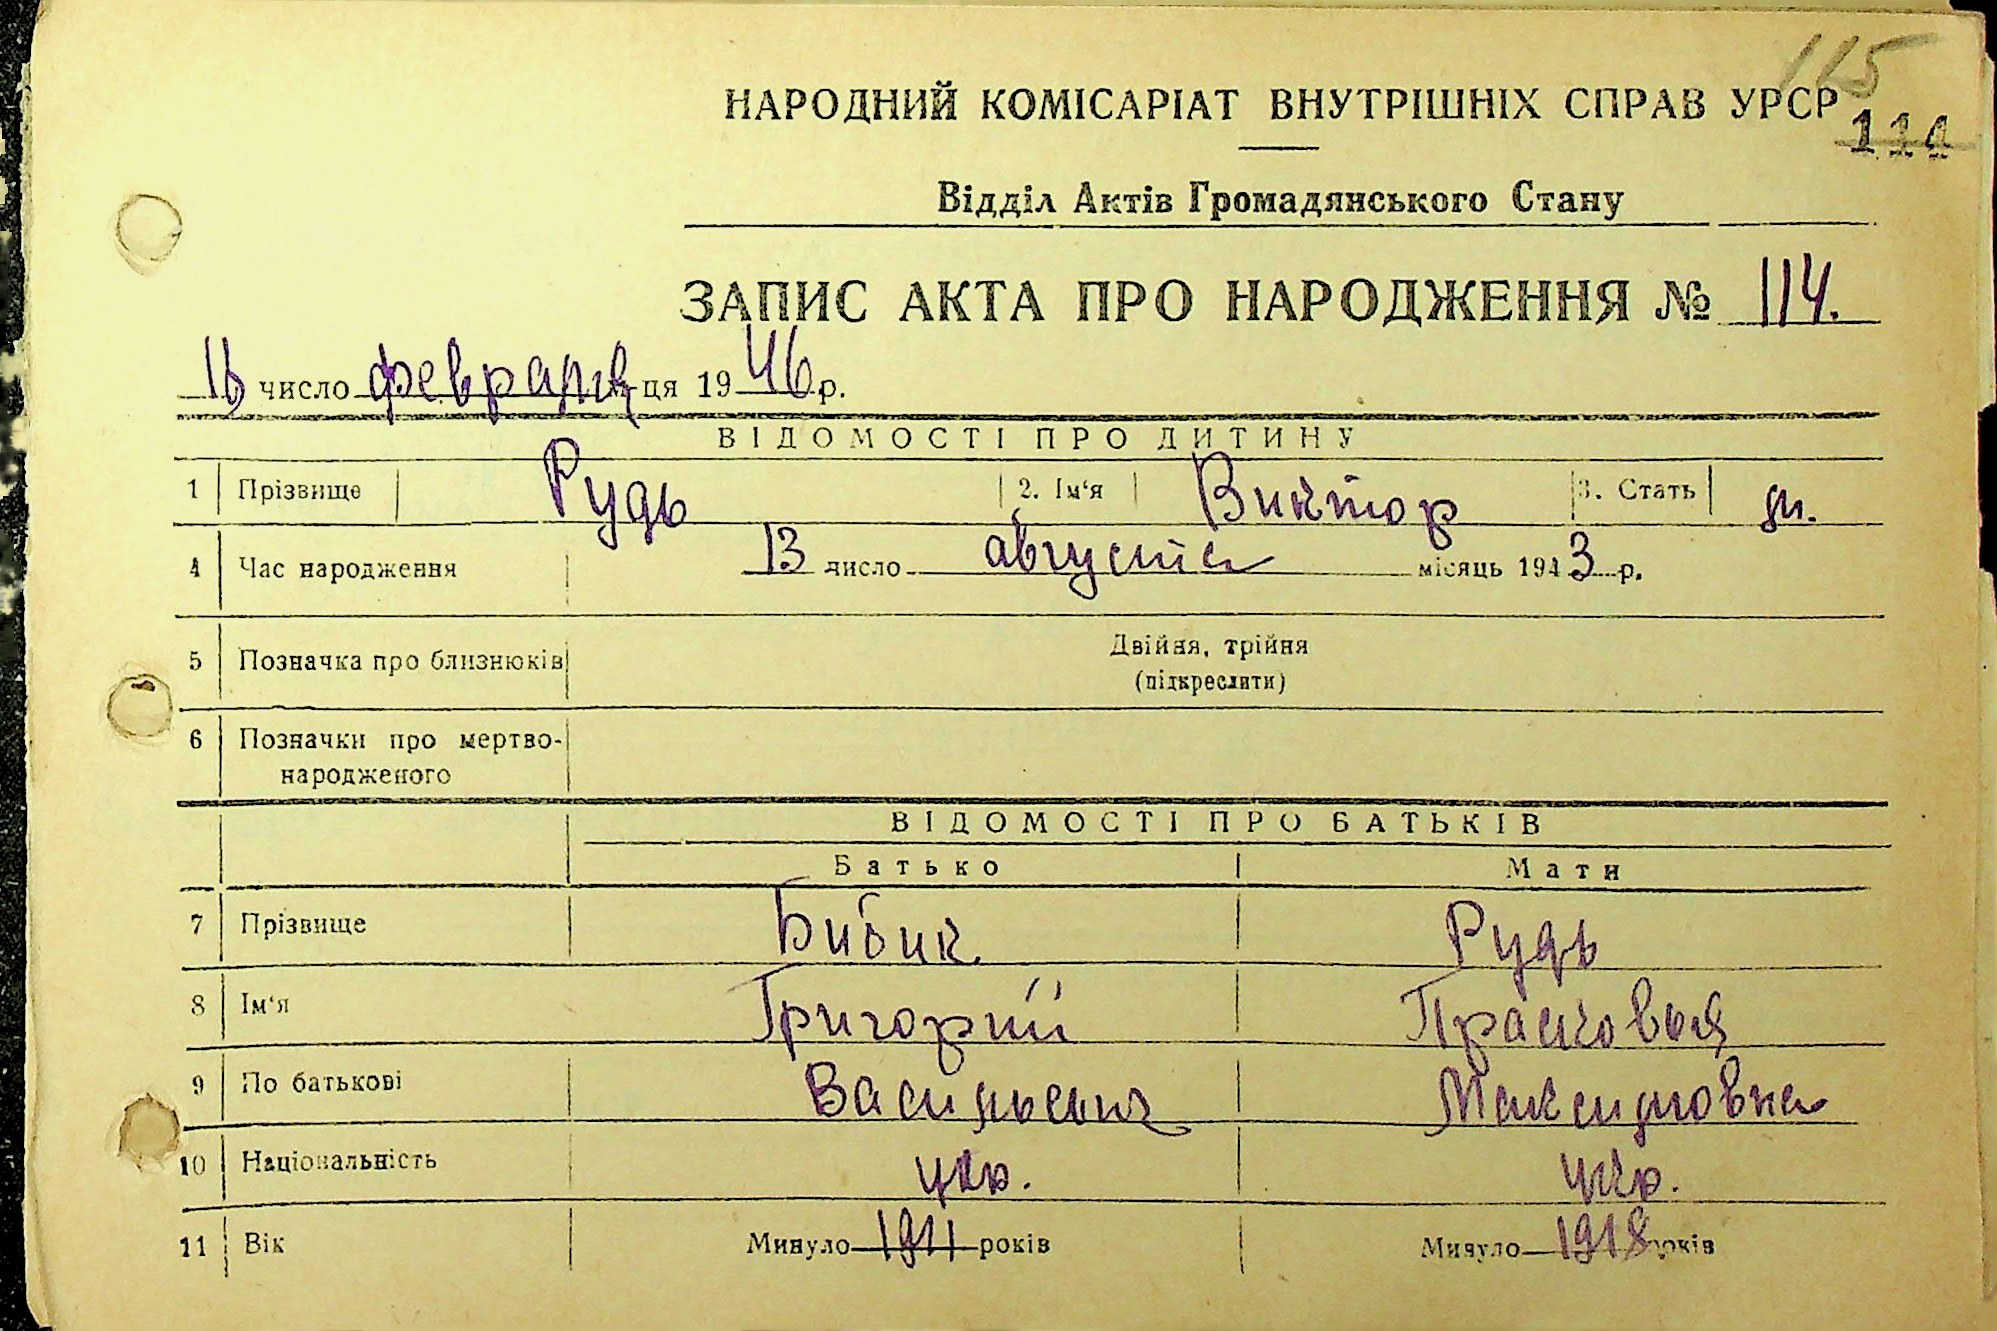 115
НАРОДНИЙ КОМІСАРІАТ ВНУТРІШНІХ СПРАВ УРСР
114
Відділ Актів Громадянського Стану
ЗАПИС АКТА ПРО НАРОДЖЕННЯ № 114.
16 число февраля ця 1946 р.
ВІДОМОСТІ ПРО ДИТИНУ
1 Прізвище Рудь 2. Ім‘я Виктор 3. Стать м.
4 Час народження 13 число августа місяць 1943 р.
5 Позначка про близнюків Двійня, трійня
(підкреслити)
6 Позначки про мертво-
народженого
ВІДОМОСТІ ПРО БАТЬКІВ
Батько Мати
7 Прізвище Бибик Рудь
8 Ім‘я Григорий Прасковья
9 По батькові Васильевич Максимовна
10 Національність укр. укр.
11 Вік Минуло 1911 років Минуло 1918 років